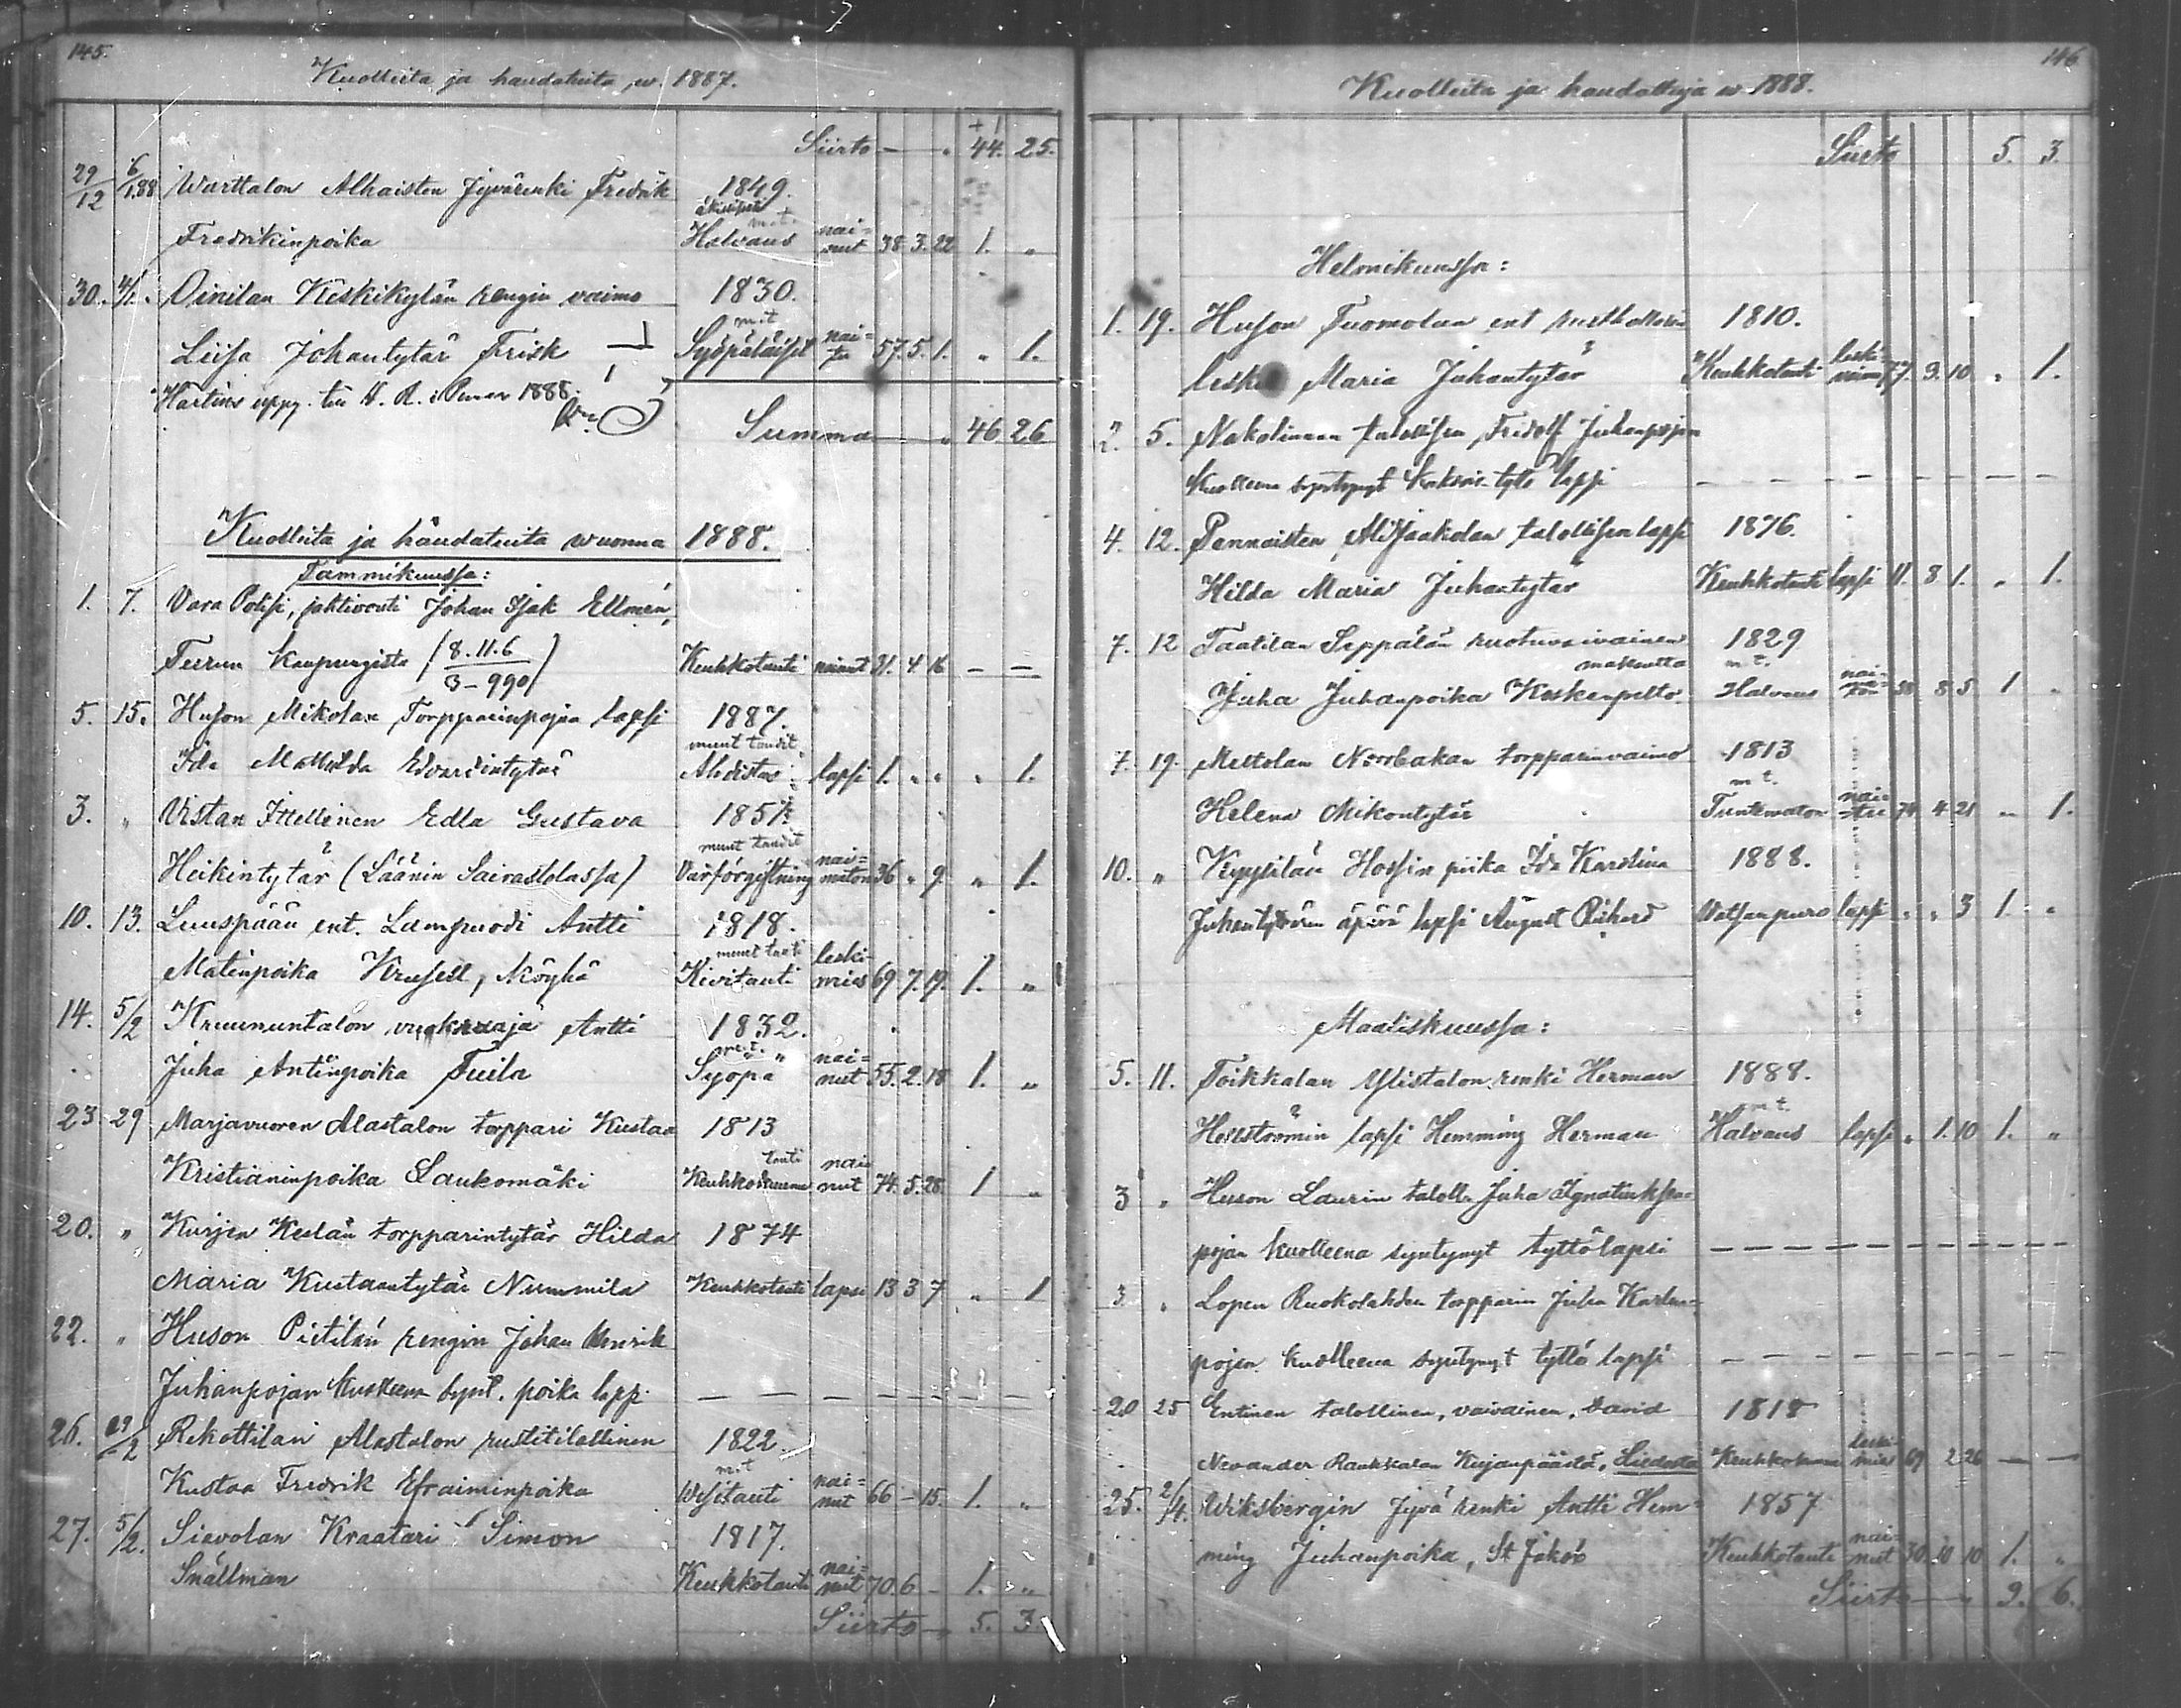 145.
Kuolleita ja haudatuita w. 1887.
+1
Siirto — „ 44. 25.
29/12 6/1 88 Warttalon Alhaisten Jyvärenki Fredrik 1849.
Fredrikinpoika Halvaus nai=nut 38. 3. 22 1. „
30. 4/1. Oinilan Keskikylän rengin vaimo 1830.
m.t
Liisa Johantytär Frisk Syöpäläiset nai=tu 57. 5. 1. „ 1.
1888
Summa — „ 46 26
Kuolleita ja haudatuita wuonna 1888.
Tammikuussa:
1. 7. Vara Polisi, jahtivouti Johan Isak Ellmén,
Turun Kaupungista (8.11.6 / 3-990) Keuhkotauti nainut 31. 4 16 — —
5. 15. Huson Mikolan Torpparinpojan lapsi 1887.
muut taudit
Ida Mathilda Edvardintytär Ahdistus lapsi 1. „ „ „ 1.
3. „ Vistan Ittellinen Edla Gustava 1851.
muut taudit
Heikintytär (Läänin Sairastelassa) Varförgiftning nai=maton 36 „ 9. „ 1.
10. 13. Luuspään ent. Lampuodi Antti 1818.
muut tauti
Matinpoika Krusell, Köyhä Kivitauti leski-mies 69. 7. 19. 1. „
14. 5/2 Kruununtalon vuokraaja Antti 1832.
m.t.
Juha Antinpoika Tuila Syöpä nai=nut 55. 2. 18 1. „
23. 29 Marjavuoren Alastalon torppari Kustaa 1813
Kristianinpoika Laukomäki nai=nut 74. 5. 28. 1 „
20. „ Kurjen Keslän torpparintytär Hilda 1874
Maria Kustaantytär Nummila Keuhkotauti lapsi 13 3 7 „ 1
22. „ Huson Pietilän rengin Johan Henrik
Juhanpojan kuolleena synt. poika lapsi — — — — — — — —
26. Rekottilan Alastalon rustitilallinen 1822
m.t
Kustaa Fredrik Efraiminpoika Wesitauti nai=nut 66 — 15. 1. „
27. 5/2. Sievolan Kraatari Simon 1817.
Snällman Keuhkotauti nai=nut 70. 6 — 1. „
Siirto — „ 5. 3.
146
Kuolleita ja haudattuja w. 1888.
Siirto 5. 3.
Helmikuussa:
1. 19. Huson Tuomolan ent rusthollarin 1810.
leski Maria Juhantytär Keuhkotauti leski-vaimo 77. 9. 10 „ 1.
2. 5. Nakolinnan talollisen Fridolf Juhanpojan
Kuolleena syntynyt tyttö lapsi — — — — — — — — —
4. 12. Pannaisten Alijaakolan talollisen lapsi 1876.
Hilda Maria Juhantytär Keuhkotauti lapsi 11. 8 1. „ 1.
7. 12 Taatilan Seppälän ruotuvaivainen 1829
m.t.
Juha Juhanpoika Koskenpelto Halvaus 58 8 5. 1 „
7. 19. Meltolan Norrbakan torpparinvaimo 1813
m t.
Helena Mikontytär Tuntematon 74 4 21 „ 1.
10. „ Kyysilän Hossin piika Ida Karolina 1888.
Juhantyttären äpärä lapsi August Rikhard Watsanpuro lapsi „ „ 3 1. „
Maaliskuussa:
5. 11. Toikkalan Ylistalon renki Herman 1888.
m t.
Hellströmin lapsi Hemming Herman Halvaus lapsi „ 1. 10 1. „
3 „ Huson Laurin taloll. Juha Ignatiuksen=
pojan kuolleena syntynyt tyttölapsi — — — — — — — — —
3 „ Lopen Ruokolahden torpparin Juha Karlin=
pojan kuolleena syntynyt tyttö lapsi — — — — — — — —
20 25 Entinen talollinen, vaivainen, David 1818
Nevander Raukkalan Kurjanpäästä, Liedosta leski-mies 69 2 26 — —
25. 2/4. Wiksbergin Jyvä renki Antti Hem= 1857
ming Juhanpoika, St Jakob Keuhkotauti nai=nut 30. 10 10 1. „
Siirto — „ 9. 6.